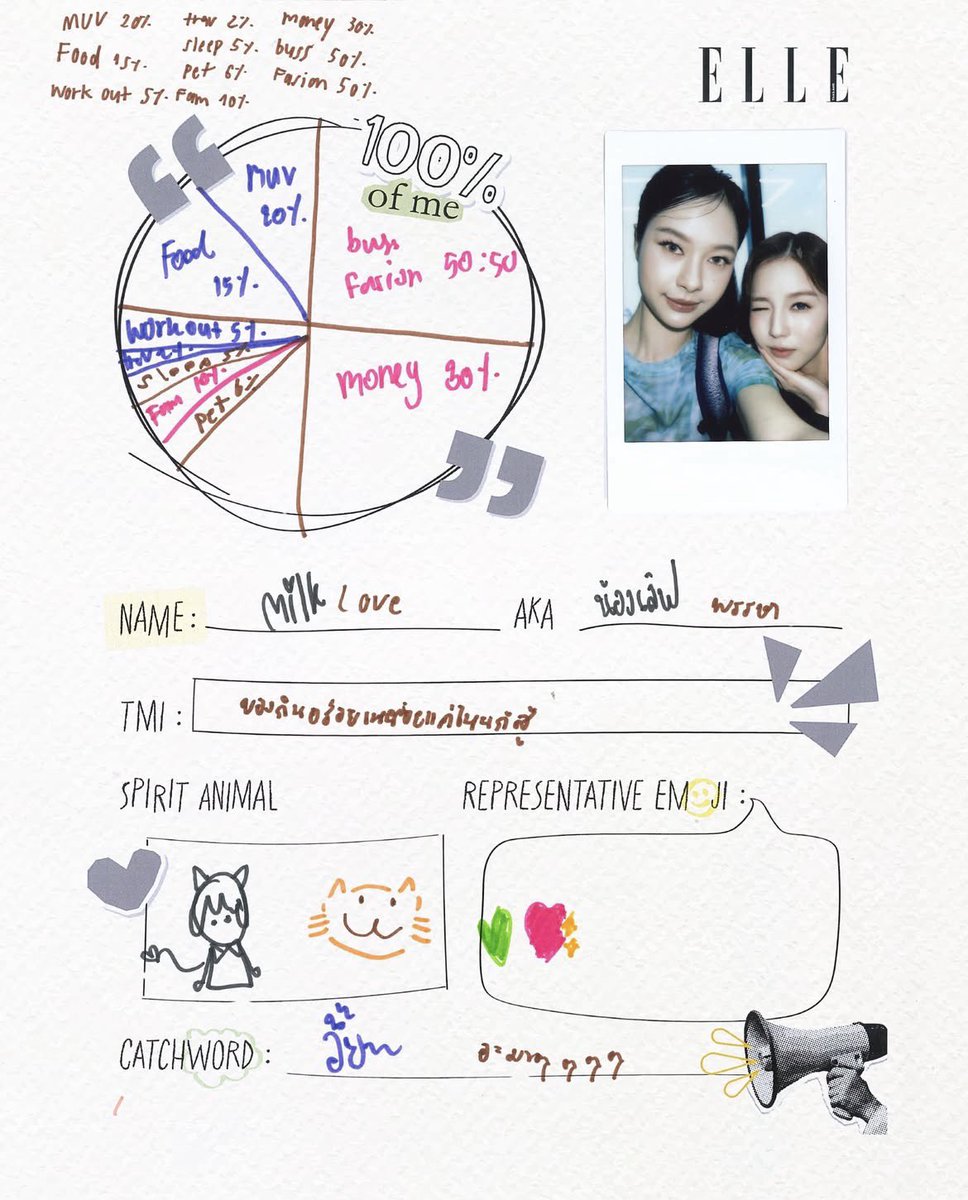 MUV 20%. trav 2%. money 30%.
Food 15%. sleep 5%. buss 50%.
pet 6%. Fasion 50%.
work out 5%. Fam 10%.
ELLE
100%
of me
MUV
20%.
Food
15%.
buss
Fasion 50:50
work out 5%.
sleep 5%
Fam 10%.
pet 6%
money 30%.
NAME: Milk Love AKA น้องเลิฟ พรรษา
TMI : ของกินอร่อยเหนื่อยแค่ไหนก็สู้
SPIRIT ANIMAL
REPRESENTATIVE EMOJI :
CATCHWORD :